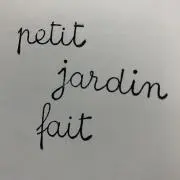 petit
jardin
fait